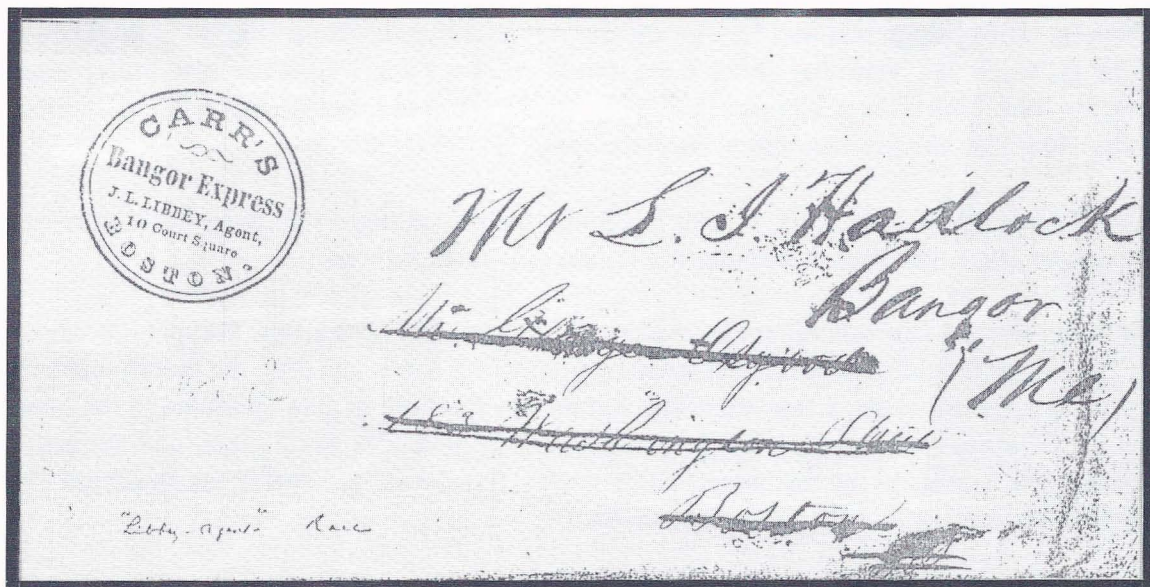 CARR'S
Bangor Express
J. L. LIBBEY, Agent,
10 Court Square
BOSTON.
Mr L. I. Hadlock
Bangor
(Me)
Washington
Boston
"Libby - Agent" Rare